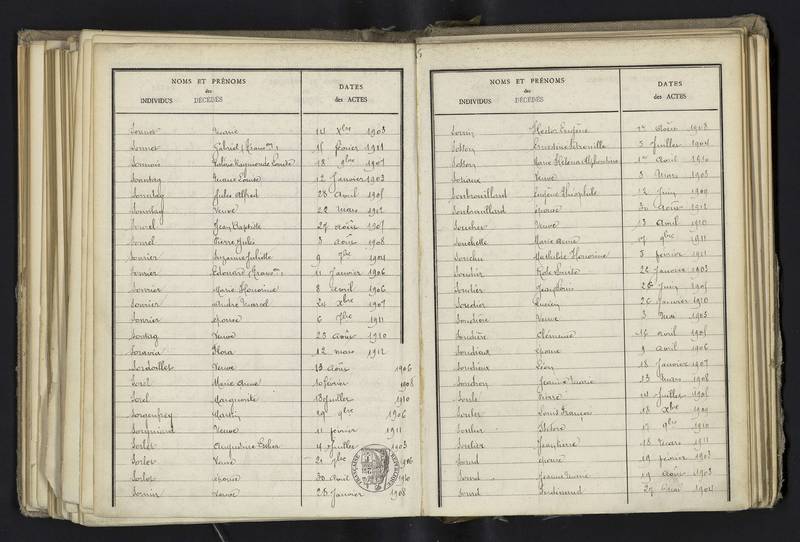 NOMS ET PRÉNOMS
des
INDIVIDUS DÉCÉDÉS
DATES
des ACTES
Sonnet Marie 14 Xbre 1903
Sonnet Gabriel 15 février 1911
18 9bre 1907
Sontag Marie Louise 12 Janvier 1903
Sontag Jules Alfred 28 avril 1905
Sonntag Veuve 22 mars 1912
Sorel Jean Baptiste 27 août 1905
Sorel Pierre Jules 3 août 1908
Sorrier Suzanne Juliette 9 7bre 1904
Sorrier Edouard 11 Janvier 1906
Sorrier Marie Honorine 8 avril 1906
Sorrier André Marcel 24 Xbre 1907
Sorrier épouse 6 7bre 1911
Sontag Veuve 23 août 1910
Soravia Flora 12 mars 1912
Sordoillet Veuve 13 août 1906
Sorel Marie Anne 10 février 1908
Sorel Marguerite 18 Juillet 1910
Martin 29 9bre 1906
Veuve 11 février 1911
Sorlet Augustine Esther 4 Juillet 1903
Sorlet 21 7bre 1906
Sorlot épouse 30 avril 1910
Sornin Veuve 28 Janvier 1908
NOMS ET PRÉNOMS
des
INDIVIDUS DÉCÉDÉS
DATES
des ACTES
Sorrin Hector Eugène août 1908
Sosson Ernestine Pétronille 5 Juillet 1904
Sosson Marie Héléna Alphonsine 1er avril 1910
Veuve 3 Mars 1903
Soubrouillard Eugène Théophile 12 Juin 1909
Soubrouillard épouse 30 août 1912
Soucher Veuve 13 avril 1910
Souchette Marie Anne 17 9bre 1911
Souchu Mathilde Honorine 5 février 1911
Soudier Rose Laure 22 Janvier 1903
Soudier Jean Louis 26 Juin 1905
Soudier Lucien 26 Janvier 1910
Soudière Veuve 3 Mai 1903
Soudière Clémence 16 avril 1905
Soudieux épouse 9 avril 1906
Soudieux Léon 18 Janvier 1907
Soudron Jeanne Marie 13 mars 1908
Pierre 14 Juillet 1905
Soulier Louis François 18 Xbre 1909
Soulier Isidore 17 9bre 1910
Soulier Jean Pierre 18 mars 1911
Sourd épouse 19 février 1903
Sourd Jeanne Marie 19 août 1903
Sourd Ferdinand 27 mai 1904